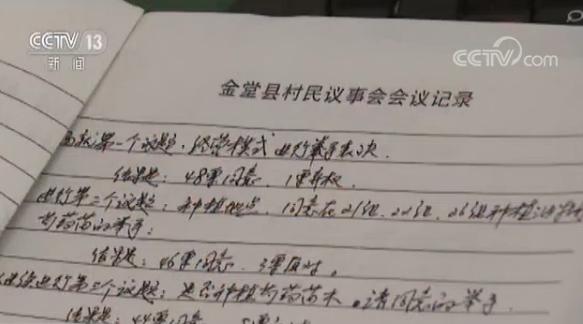 CCTV 13
新闻
CCTV.com
金堂县村民议事会会议记录
第一个议题，经营模式进行举手表决．
结果是：48票同意．1票弃权
进行第二个议题：种植地点．同意在21组．22组．26组种植
芍药苗的举手：
结果是：46票同意．3票反对。
继续进行第三个议题：是否种植芍药苗木．请同意的举手．
结果是：44票同意．